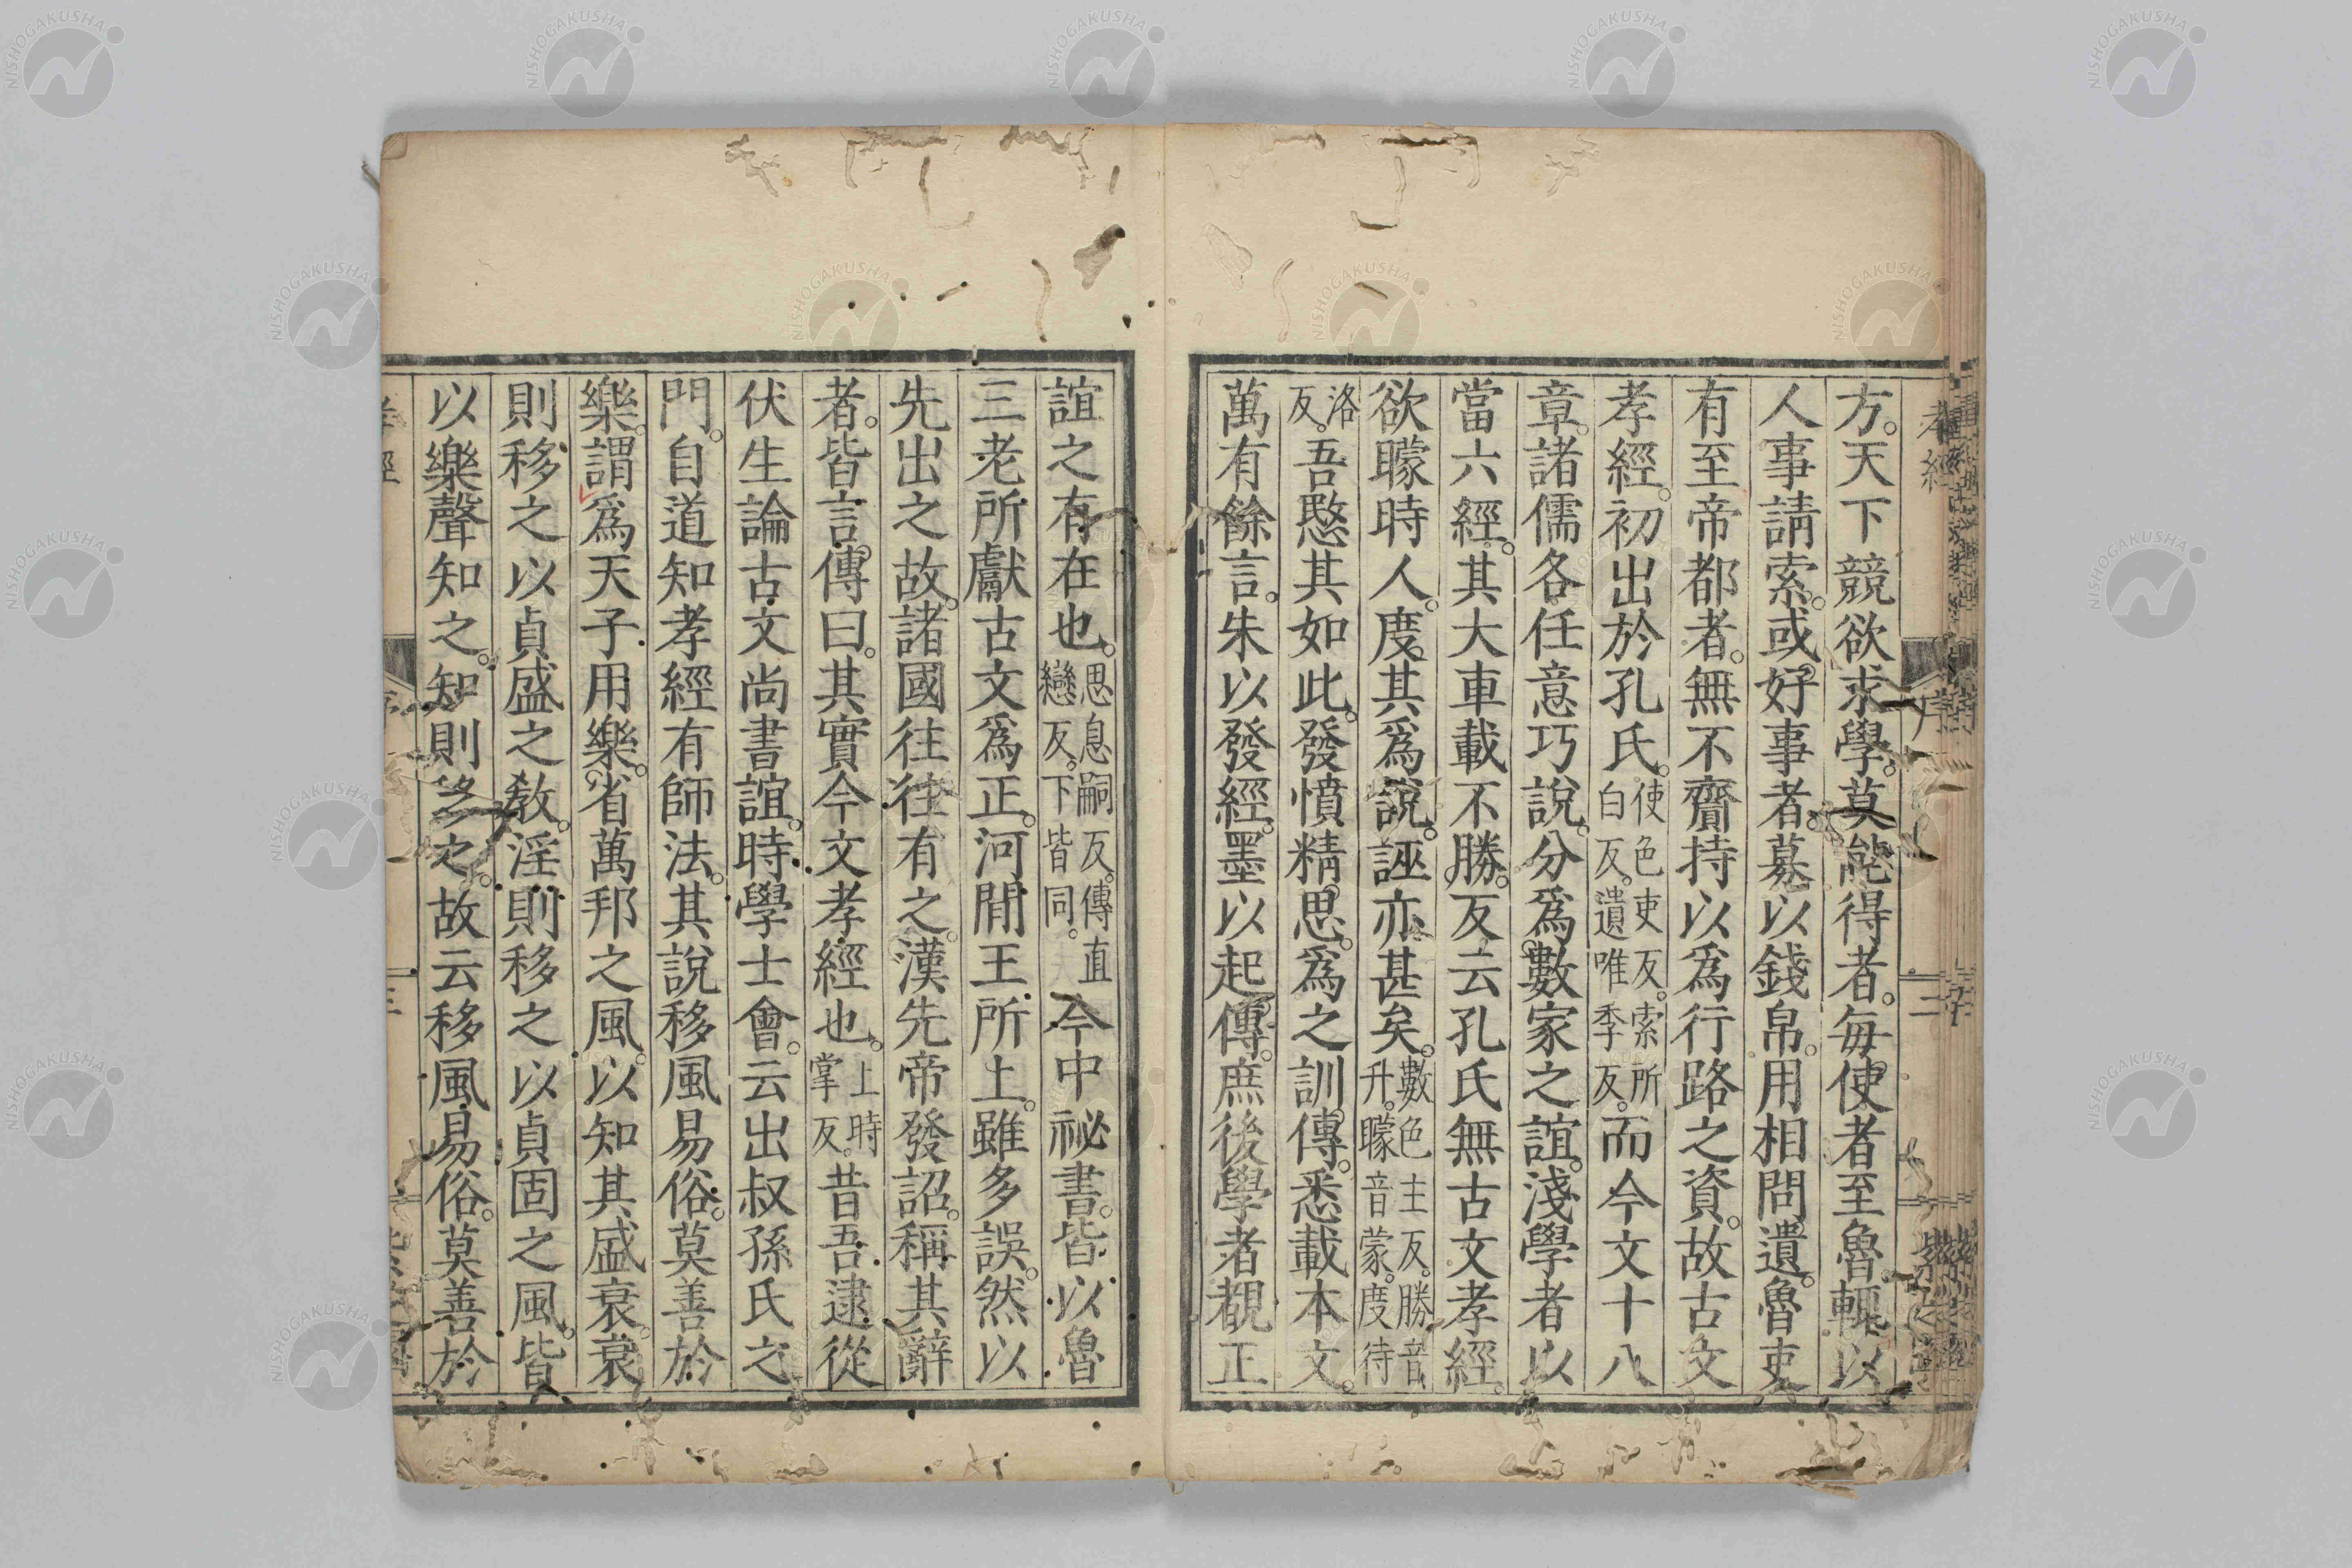 方。天下競欲求學。莫能得者。每使者至魯。輒以
人事請索。或好事者。募以錢帛。用相問遺。魯吏
有至帝都者。無不齎持以爲行路之資。故古文
孝經。初出於孔氏。使色吏反。索所白反。遺唯季反。而今文十八
章。諸儒各任意巧說。分爲數家之誼。淺學者以
當六經。其大車載不勝。反云孔氏無古文孝經。
欲矇時人。度其爲說。誣亦甚矣。數色主反。勝音升。矇音蒙。度待
洛反。吾愍其如此。發憤精思。爲之訓傳。悉載本文。
萬有餘言。朱以發經。墨以起傳。庶後學者覩正
誼之有在也。思息嗣反。傳直戀反。下皆同。今中祕書。皆以魯
三老所獻古文爲正。河閒王所上。雖多誤。然以
先出之故。諸國往往有之。漢先帝發詔。稱其辭
者。皆言傳曰。其實今文孝經也。上時掌反。昔吾逮從
伏生論古文尚書誼。時學士會。云出叔孫氏之
門。自道知孝經有師法。其說移風易俗。莫善於
樂。謂爲天子用樂。省萬邦之風。以知其盛衰。衰
則移之以貞盛之敎。淫則移之以貞固之風。皆
以樂聲知之。知則移之。故云移風易俗。莫善於
NISHOGAKUSHA